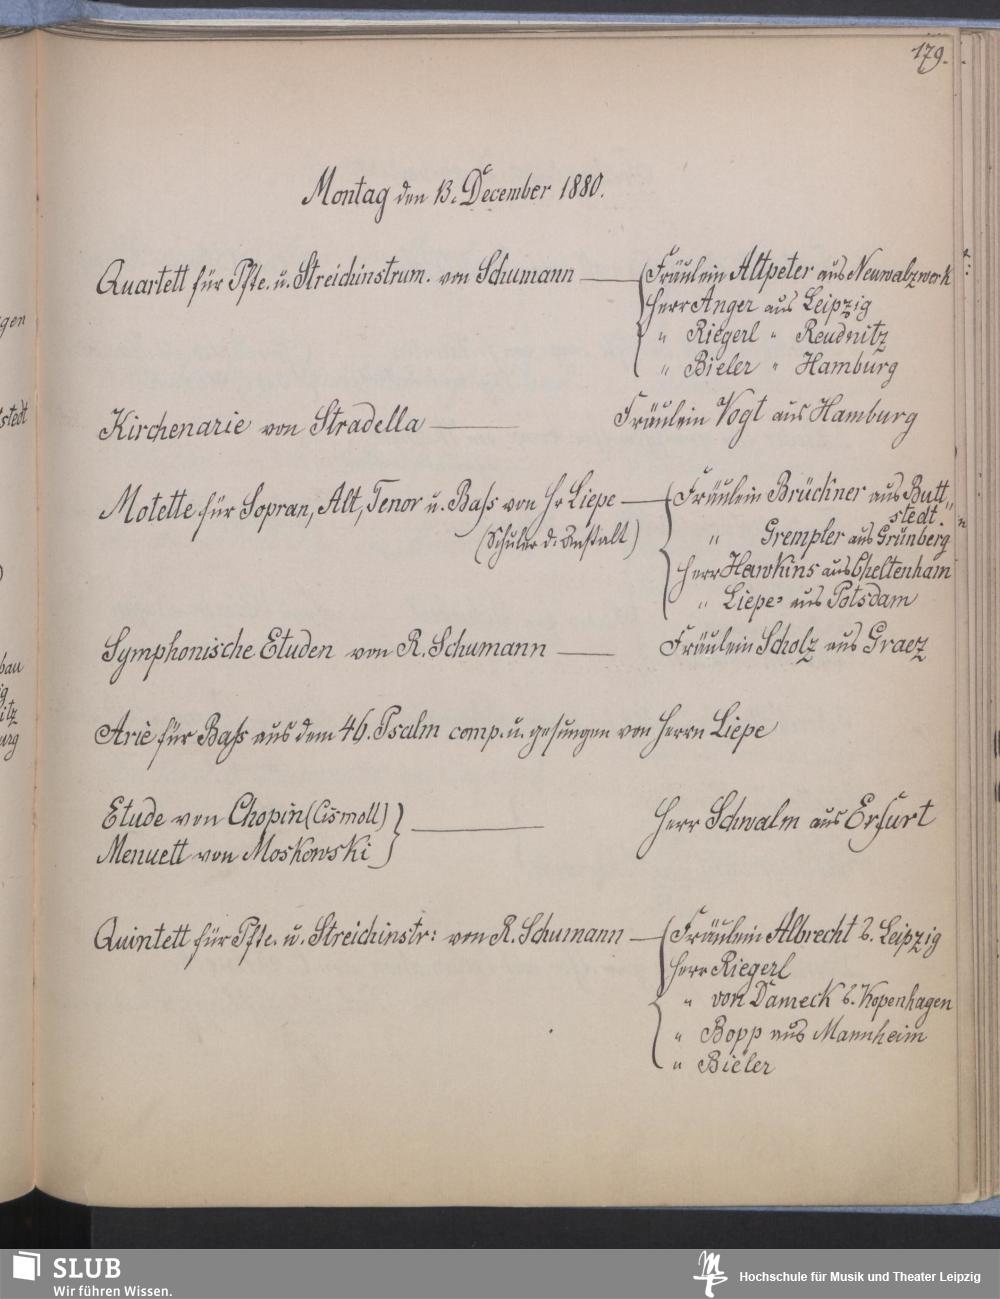 179.
Montag den 13. December 1880.
Quartett für Pfte. u. Streichinstrum. von Schumann — Fräulein Altpeter aus Neuwalzwerk
Herr Anger aus Leipzig
" Riegerl " Reudnitz
" Bieler " Hamburg
Kirchenarie von Stradella — Fräulein Vogt aus Hamburg
Motette für Sopran, Alt, Tenor u. Baß von Hr Liepe — Fräulein Brückner aus Butt
stedt.
(Schüler d. Anstalt)
" Grempler aus Grünberg
Herr Hawkins aus Cheltenham
" Liepe aus Potsdam
Symphonische Etuden von R. Schumann — Fräulein Scholz aus Graez
Arie für Baß aus dem 46. Psalm comp. u. gesungen von Herrn Liepe
Etude von Chopin (Cismoll)
Menuett von Moskowski — Herr Schwalm aus Erfurt
Quintett für Pfte. u. Streichinstr: von R. Schumann — Fräulein Albrecht a. Leipzig
Herr Riegerl
" von Dameck a. Kopenhagen
" Bopp aus Mannheim
" Bieler
gen
stedt
bau
ig
itz
urg
SLUB
Wir führen Wissen.
Hochschule für Musik und Theater Leipzig